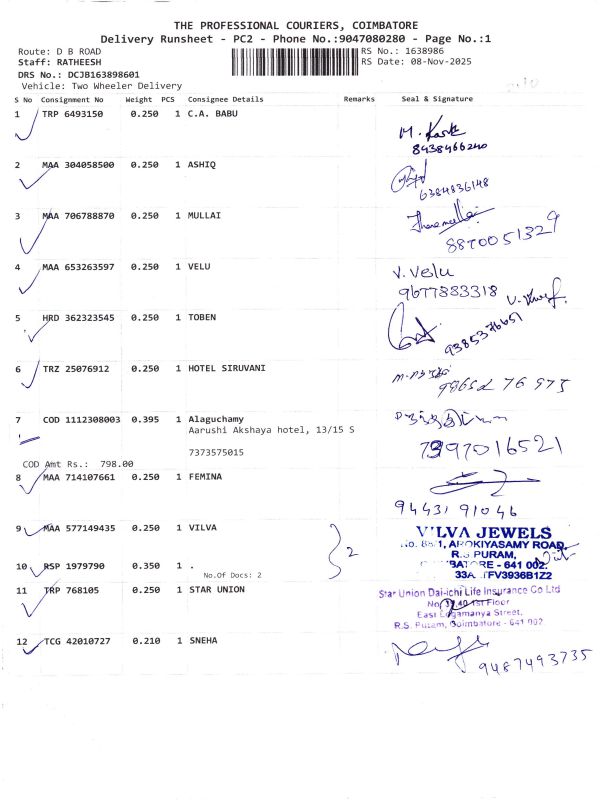 THE PROFESSIONAL COURIERS, COIMBATORE
Delivery Runsheet - PC2 - Phone No.:9047080280 - Page No.:1
Route: D B ROAD RS No.: 1638986
Staff: RATHEESH RS Date: 08-Nov-2025
DRS No.: DCJB163898601
Vehicle: Two Wheeler Delivery
S No Consignment No Weight PCS Consignee Details Remarks Seal & Signature
1 TRP 6493150 0.250 1 C.A. BABU
8438466240
2 MAA 304058500 0.250 1 ASHIQ
6384836148
3 MAA 706788870 0.250 1 MULLAI
8870051329
4 MAA 653263597 0.250 1 VELU V. Velu
9677883318
5 HRD 362323545 0.250 1 TOBEN
9385376651
6 TRZ 25076912 0.250 1 HOTEL SIRUVANI
98652 76 975
7 COD 1112308003 0.395 1 Alaguchamy
Aarushi Akshaya hotel, 13/15 S
7397016521
7373575015
COD Amt Rs.: 798.00
8 MAA 714107661 0.250 1 FEMINA
94431 91046
9 MAA 577149435 0.250 1 VILVA VILVA JEWELS
AROKIYASAMY ROAD,
2 R.S PURAM,
10 RSP 1979790 0.350 1 . - 641 002.
No.Of Docs: 2
11 TRP 768105 0.250 1 STAR UNION Star Union Dai-ichi Life Insurance Co Ltd
1st Floor
East Logamanya Street,
R.S. Puram, Coimbatore - 641 002
12 TCG 42010727 0.210 1 SNEHA
9487493735